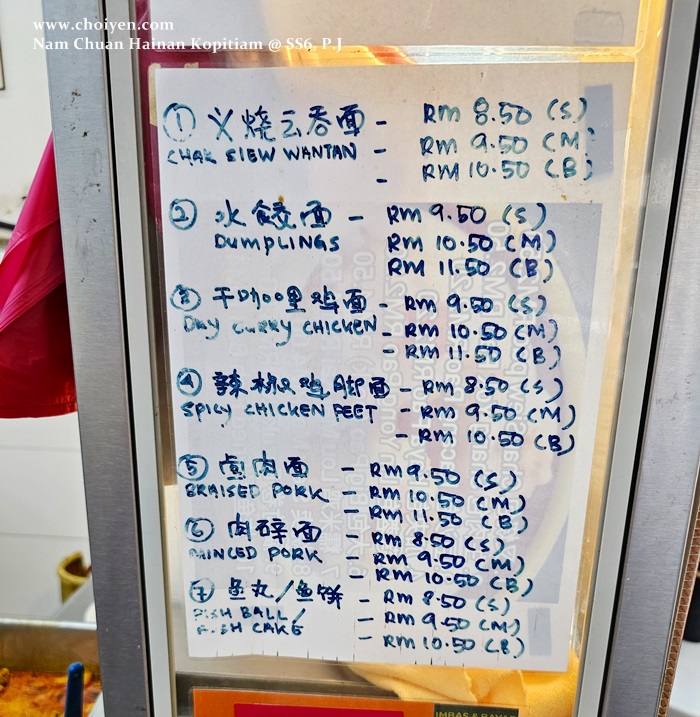 www.choiyen.com
Nam Chuan Hainan Kopitiam @ SS6, P.J
① 义烧云吞面 - RM 8.50 (S)
CHAR SIEW WANTAN - RM 9.50 (M)
- RM 10.50 (B)
② 水餃面 - RM 9.50 (S)
DUMPLINGS RM 10.50 (M)
RM 11.50 (B)
③ 干咖哩鸡面 - RM 9.50 (S)
DRY CURRY CHICKEN - RM 10.50 (M)
- RM 11.50 (B)
④ 辣椒鸡脚面 - RM 8.50 (S)
SPICY CHICKEN FEET - RM 9.50 (M)
- RM 10.50 (B)
⑤ 卤肉面 - RM 9.50 (S)
BRAISED PORK - RM 10.50 (M)
- RM 11.50 (B)
⑥ 肉碎面 - RM 8.50 (S)
MINCED PORK - RM 9.50 (M)
- RM 10.50 (B)
⑦ 鱼丸/鱼饼 - RM 8.50 (S)
FISH BALL / - RM 9.50 (M)
FISH CAKE - RM 10.50 (B)